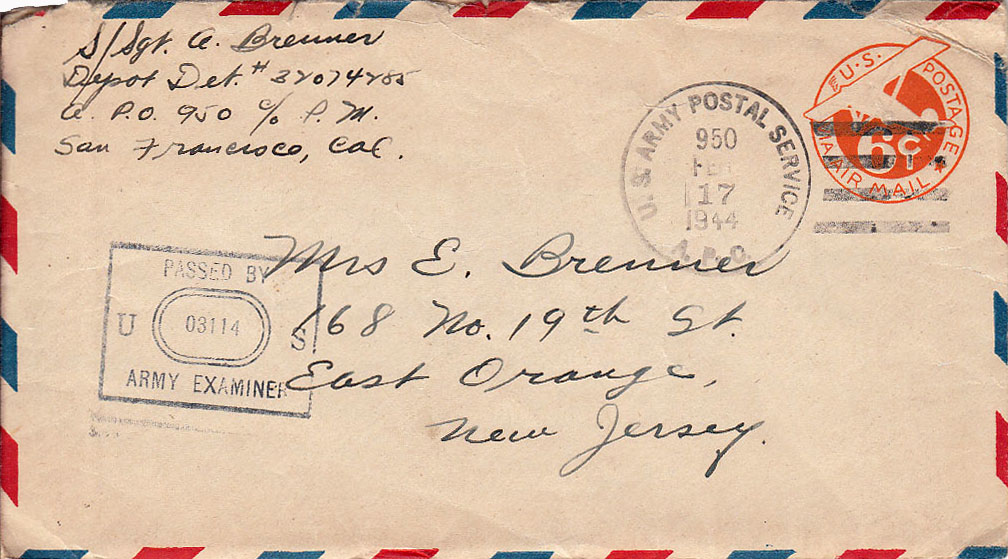 S/Sgt. A. Brenner
Depot Det. # 32074285
A. P.O. 950 c/o P.M.
San Francisco, Cal.
U.S. POSTAGE
6¢
VIA AIR MAIL
U.S. ARMY POSTAL SERVICE
950
17
1944
A.P.O.
PASSED BY
U 03114 S
ARMY EXAMINER
Mrs E. Brenner
168 No. 19th St.
East Orange,
New Jersey.